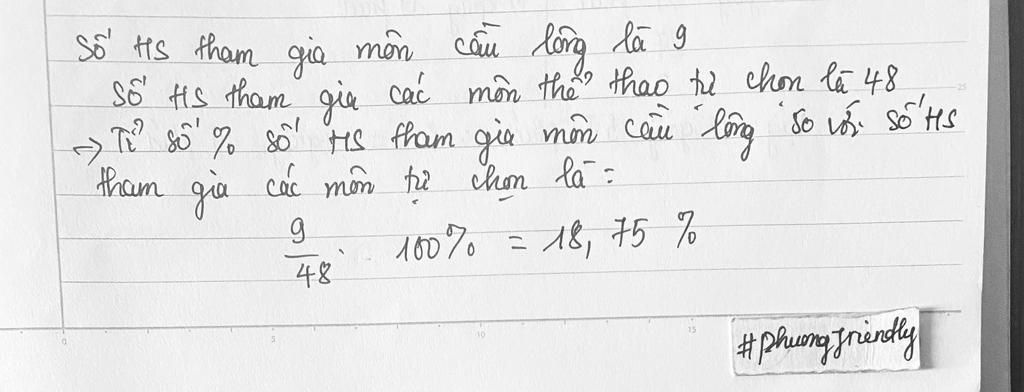 Số HS tham gia môn cầu lông là 9
Số HS tham gia các môn thể thao tự chọn là 48
→ Tỉ số % số HS tham gia môn cầu lông so với số HS
tham gia các môn tự chọn là:
9/48 . 100% = 18,75 %
0 5 10 15
25
#phuongfriendly